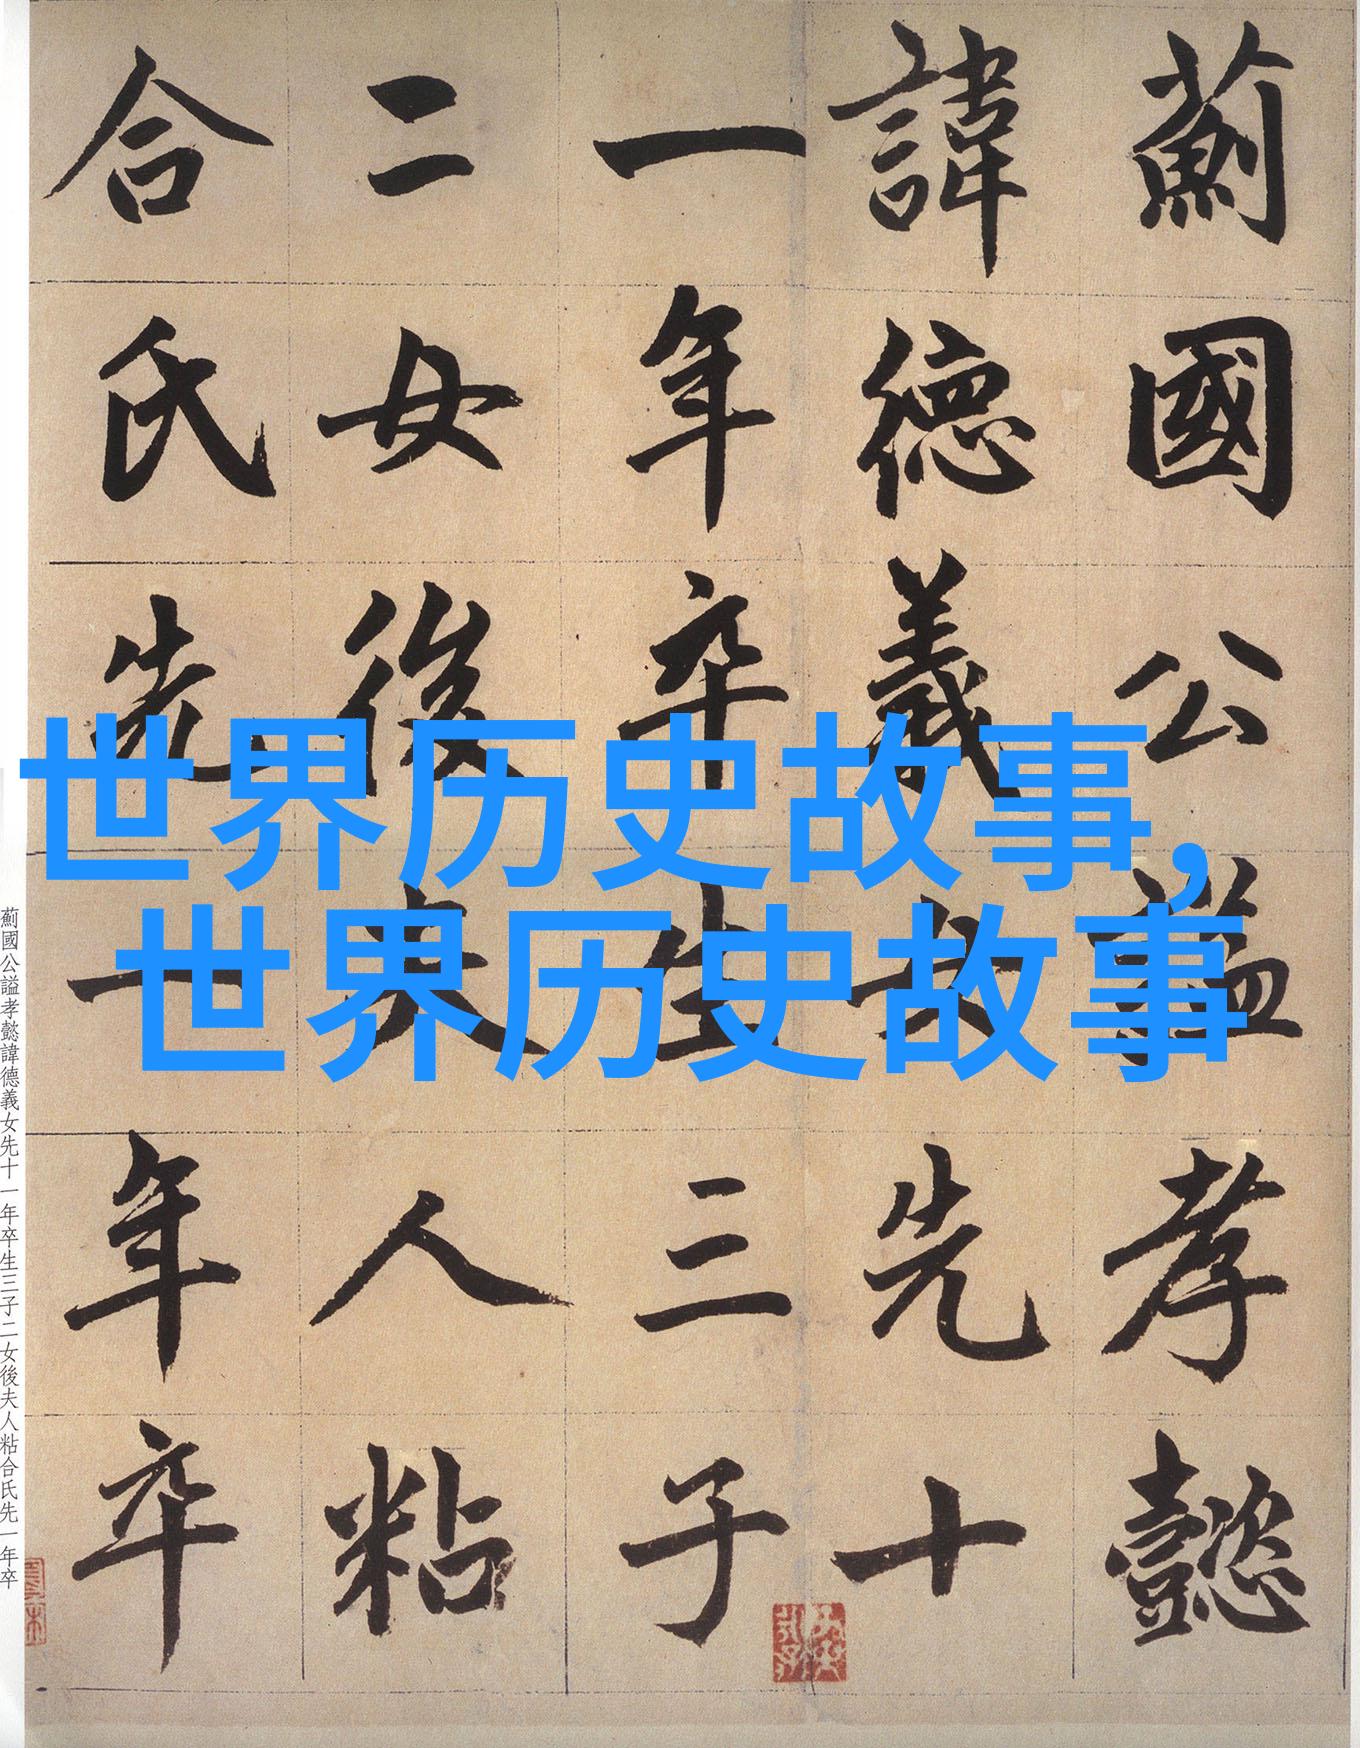 薊國公謚孝懿
諱德義女先十
一年卒生三子
二女後夫人粘
合氏先一年卒
世界历史故事，
世界历史故事
薊國公謚孝懿諱德義女先十一年卒生三子二女後夫人粘合氏先一年卒